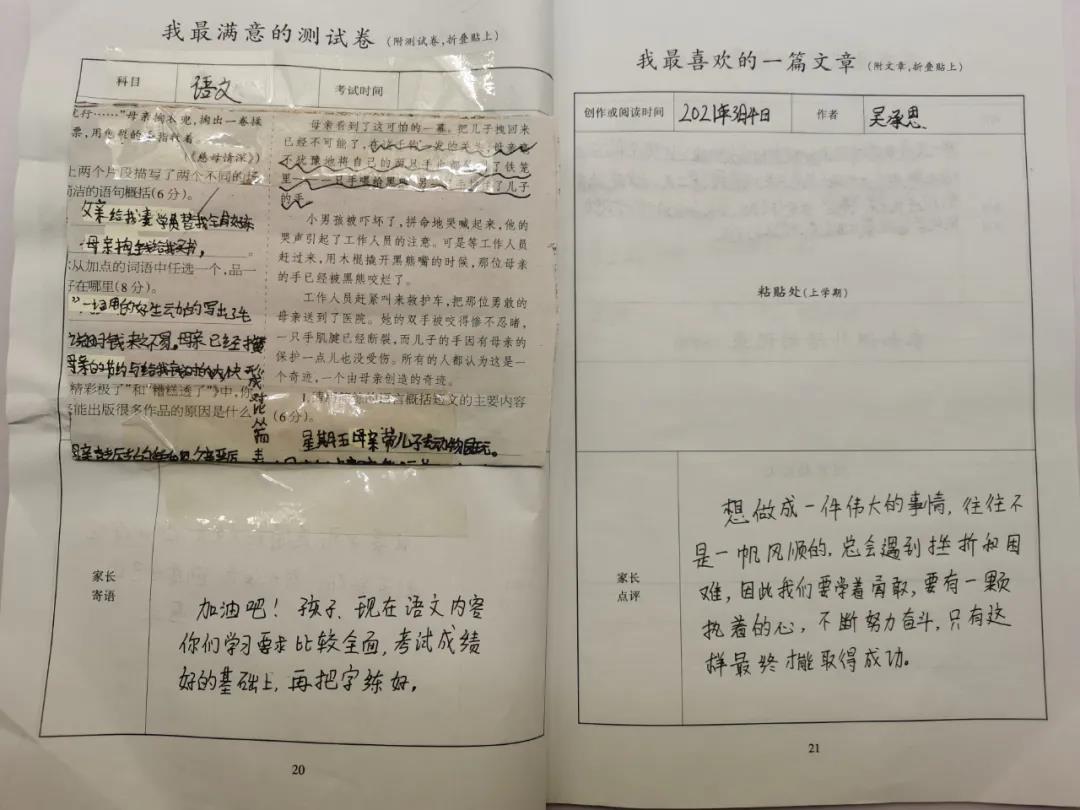 我最满意的测试卷 (附测试卷,折叠贴上)
科目 语文 考试时间
行……”母亲掏衣兜,掏出一卷揉
票,用
(《慈母情深》)
上两个片段描写了两个不同的场
简洁的语句概括(6分)。
父亲给我
母亲掏钱给我买书,
从加点的词语中任选一个,品一
在哪里(8分)。
母亲已经
精彩极了”和“糟糕透了”》中,你
能出版很多作品的原因是什么
成对比
母亲看到了这可怕的一幕。把儿子拽回来
已经不可能了,在这千钧一发的关头,母亲毫
不犹豫地将自己的两只手也都伸到了铁笼
里——一只手喂给黑熊,另一只手护了儿子
的手。
小男孩被吓坏了,拼命地哭喊起来,他的
哭声引起了工作人员的注意。可是等工作人员
赶过来,用木棍撬开黑熊嘴的时候,那位母亲
的手已经被黑熊咬烂了。
工作人员赶紧叫来救护车,把那位勇敢的
母亲送到了医院。她的双手被咬得惨不忍睹,
一只手肌腱已经断裂,而儿子的手因有母亲的
保护一点儿也没受伤。所有的人都认为这是一
个奇迹,一个由母亲创造的奇迹。
语言概括短文的主要内容
(6分)。
星期五母亲带儿子去动物园玩。
家长
寄语
加油吧!孩子、现在语文内容
你们学习要求比较全面,考试成绩
好的基础上,再把字练好。
20
我最喜欢的一篇文章 (附文章,折叠贴上)
创作或阅读时间 2021年3月4日 作者 吴承恩
粘贴处(上学期)
家长
点评
想做成一件伟大的事情,往往不
是一帆风顺的,总会遇到挫折和困
难,因此我们要学着勇敢,要有一颗
执着的心,不断努力奋斗,只有这
样最终才能取得成功。
21